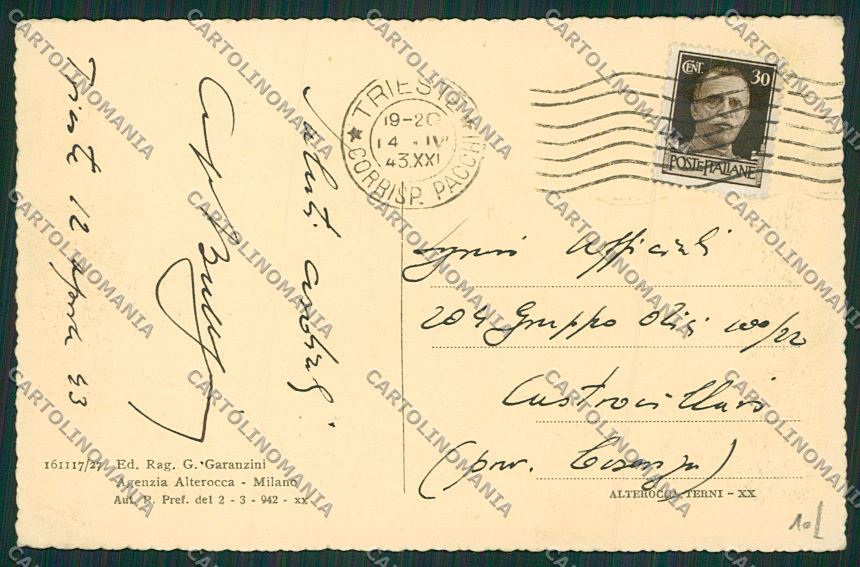 Trieste 12 aprile 43
Saluti cordiali
TRIESTE
19-20
14 . IV
43.XXI
CORRISP. PACCHI
CENT. 30
POSTE ITALIANE
Signori Ufficiali
204 Gruppo Obici 100/22
Castrovillari
(prov. Cosenza)
161117/27 Ed. Rag. G. Garanzini
Agenzia Alterocca - Milano
Aut. R. Pref. del 2 - 3 - 942 - XX
ALTEROCCA TERNI - XX
10/
CARTOLINOMANIA